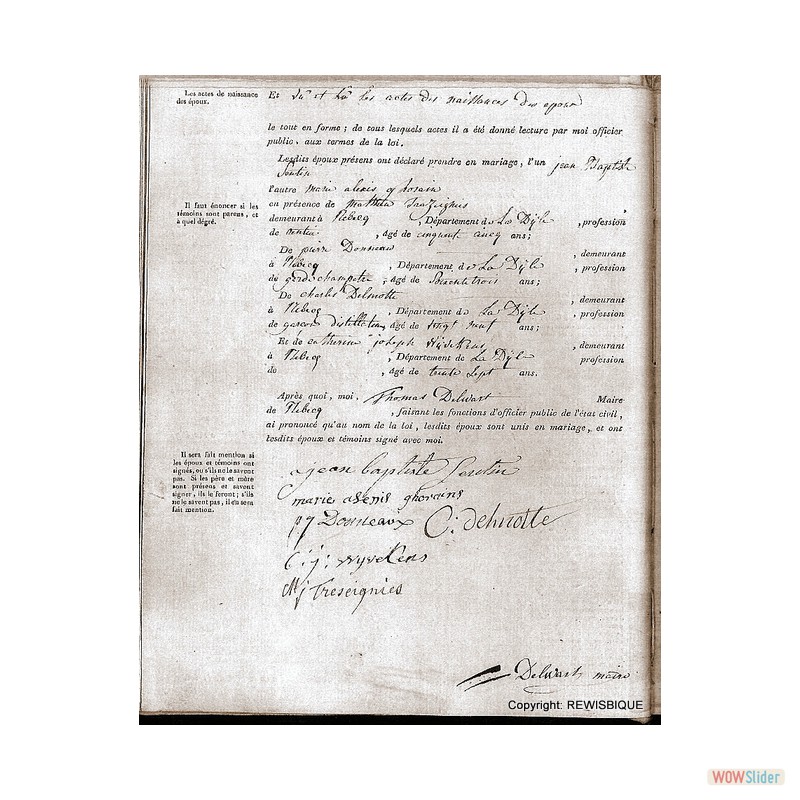 Les actes de naissance
des époux.
Et vu et lu les actes des naissances des epoux
le tout en forme ; de tous lesquels actes il a été donné lecture par moi officier
public, aux termes de la loi.
Lesdits époux présens ont déclaré prendre en mariage, l'un jean Baptiste
l'autre marie alexis ghorain
Il faut énoncer si les
témoins sont parens, et
à quel dégré.
en présence de
demeurant à Rebecq , Département de La Dyle , profession
de rentier , âgé de cinquant cincq ans ;
De pierre Donneaux , demeurant
à Rebecq , Département de La Dyle , profession
de garde champetre , âgé de Soixente trois ans ;
De Charles Delmotte , demeurant
à Rebecq , Département de La Dyle , profession
de garcon distillateur , âgé de vingt neuf ans ;
Et de catherine joseph Wyvekens , demeurant
à Rebecq , Département de La Dyle profession
de , âgé de trente sept ans.
Après quoi, moi, Thomas Delwart Maire
de Rebecq , faisant les fonctions d'officier public de l'état civil,
ai prononcé qu'au nom de la loi, lesdits époux sont unis en mariage, et ont
lesdits époux et témoins signé avec moi.
Il sera fait mention si
les époux et témoins ont
signés, ou s'ils ne le savent
pas. Si les père et mère
sont présens et savent
signer, ils le feront ; s'ils
ne le savent pas, il en sera
fait mention.
jean baptiste
marie alexis ghorains
p j Donneaux C: delmotte
C: j: wyvekens
M j Treseignies
Delwart maire
Copyright: REWISBIQUE
WOWSlider